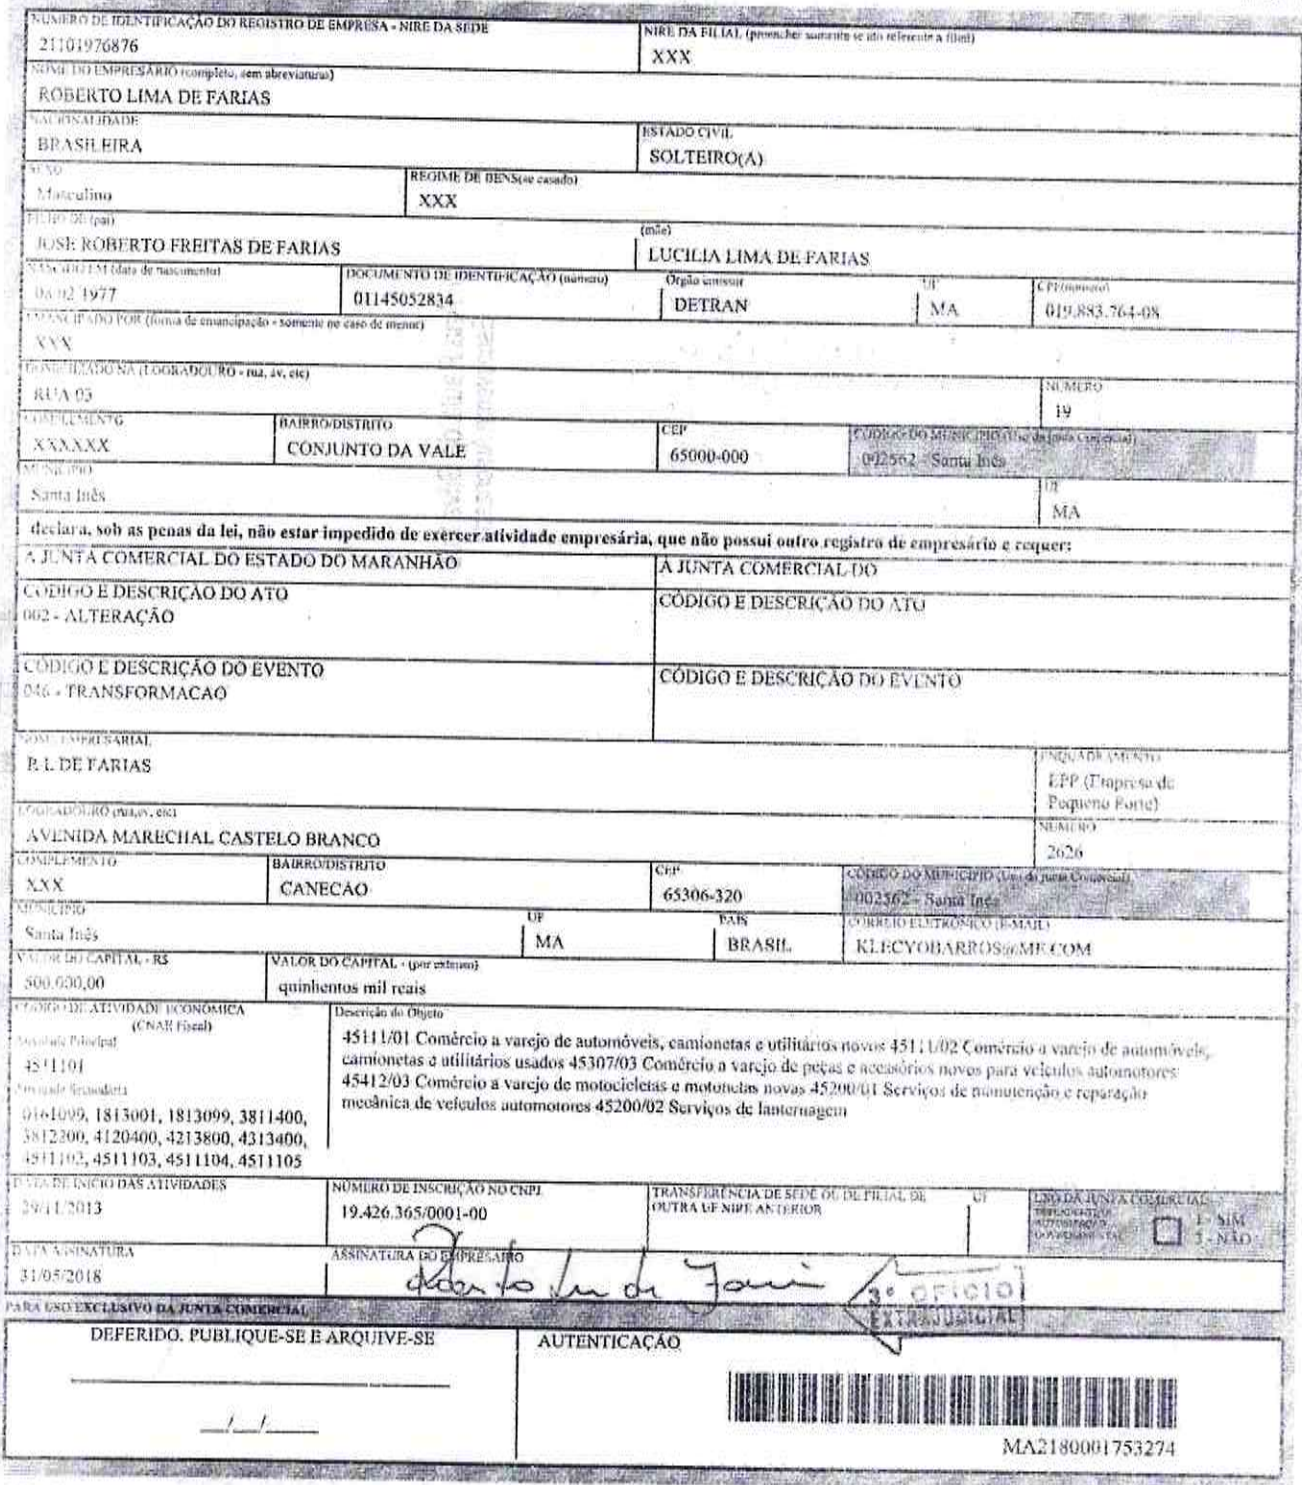 NÚMERO DE IDENTIFICAÇÃO DO REGISTRO DE EMPRESA - NIRE DA SEDE
21101976876
NIRE DA FILIAL (preencher somente se ato referente a filial)
XXX
NOME DO EMPRESÁRIO (completo, sem abreviaturas)
ROBERTO LIMA DE FARIAS
NACIONALIDADE
BRASILEIRA
ESTADO CIVIL
SOLTEIRO(A)
SEXO
Masculino
REGIME DE BENS(se casado)
XXX
FILHO DE (pai)
JOSE ROBERTO FREITAS DE FARIAS
(mãe)
LUCILIA LIMA DE FARIAS
NASCIDO EM (data de nascimento)
02 1977
DOCUMENTO DE IDENTIFICAÇÃO (número)
01145052834
Órgão emissor
DETRAN
UF
MA
CPF(número)
019.883.764-08
EMANCIPADO POR (forma de emancipação - somente no caso de menor)
XXX
DOMICILIADO NA (LOGRADOURO - rua, av, etc)
RUA 03
NÚMERO
19
COMPLEMENTO
XXXXXX
BAIRRO/DISTRITO
CONJUNTO DA VALE
CEP
65000-000
CÓDIGO DO MUNICÍPIO (Uso da Junta Comercial)
002562 - Santa Inês
MUNICÍPIO
Santa Inês
UF
MA
declara, sob as penas da lei, não estar impedido de exercer atividade empresária, que não possui outro registro de empresário e requer:
À JUNTA COMERCIAL DO ESTADO DO MARANHÃO
À JUNTA COMERCIAL DO
CÓDIGO E DESCRIÇÃO DO ATO
002 - ALTERAÇÃO
CÓDIGO E DESCRIÇÃO DO ATO
CÓDIGO E DESCRIÇÃO DO EVENTO
046 - TRANSFORMACAO
CÓDIGO E DESCRIÇÃO DO EVENTO
NOME EMPRESARIAL
R L DE FARIAS
ENQUADRAMENTO
EPP (Empresa de
Pequeno Porte)
LOGRADOURO (rua,av, etc)
AVENIDA MARECHAL CASTELO BRANCO
NÚMERO
2626
COMPLEMENTO
XXX
BAIRRO/DISTRITO
CANECAO
CEP
65306-320
CÓDIGO DO MUNICÍPIO (Uso da Junta Comercial)
002562 - Santa Inês
MUNICÍPIO
Santa Inês
UF
MA
PAÍS
BRASIL
CORREIO ELETRÔNICO (E-MAIL)
KLECYOBARROS@ME.COM
VALOR DO CAPITAL - R$
500.000,00
VALOR DO CAPITAL - (por extenso)
quinhentos mil reais
CÓDIGO DE ATIVIDADE ECONÔMICA
(CNAE Fiscal)
Atividade Principal
4511101
Atividade Secundária
0161099, 1813001, 1813099, 3811400,
3812200, 4120400, 4213800, 4313400,
4511102, 4511103, 4511104, 4511105
Descrição do Objeto
45111/01 Comércio a varejo de automóveis, camionetas e utilitários novos 45111/02 Comércio a varejo de automóveis,
camionetas e utilitários usados 45307/03 Comércio a varejo de peças e acessórios novos para veículos automotores
45412/03 Comércio a varejo de motocicletas e motonetas novas 45200/01 Serviços de manutenção e reparação
mecânica de veículos automotores 45200/02 Serviços de lanternagem
DATA DE INÍCIO DAS ATIVIDADES
29/11/2013
NÚMERO DE INSCRIÇÃO NO CNPJ
19.426.365/0001-00
TRANSFERÊNCIA DE SEDE OU DE FILIAL DE
OUTRA UF NIRE ANTERIOR
UF
USO DA JUNTA COMERCIAL
DEPENDENTE DE
AUTORIZAÇÃO
GOVERNAMENTAL
1 - SIM
3 - NÃO
DATA ASSINATURA
31/05/2018
ASSINATURA DO EMPRESÁRIO
Roberto Lima de Farias
3º OFÍCIO
EXTRAJUDICIAL
PARA USO EXCLUSIVO DA JUNTA COMERCIAL
DEFERIDO. PUBLIQUE-SE E ARQUIVE-SE
__/__/__
AUTENTICAÇÃO
MA2180001753274